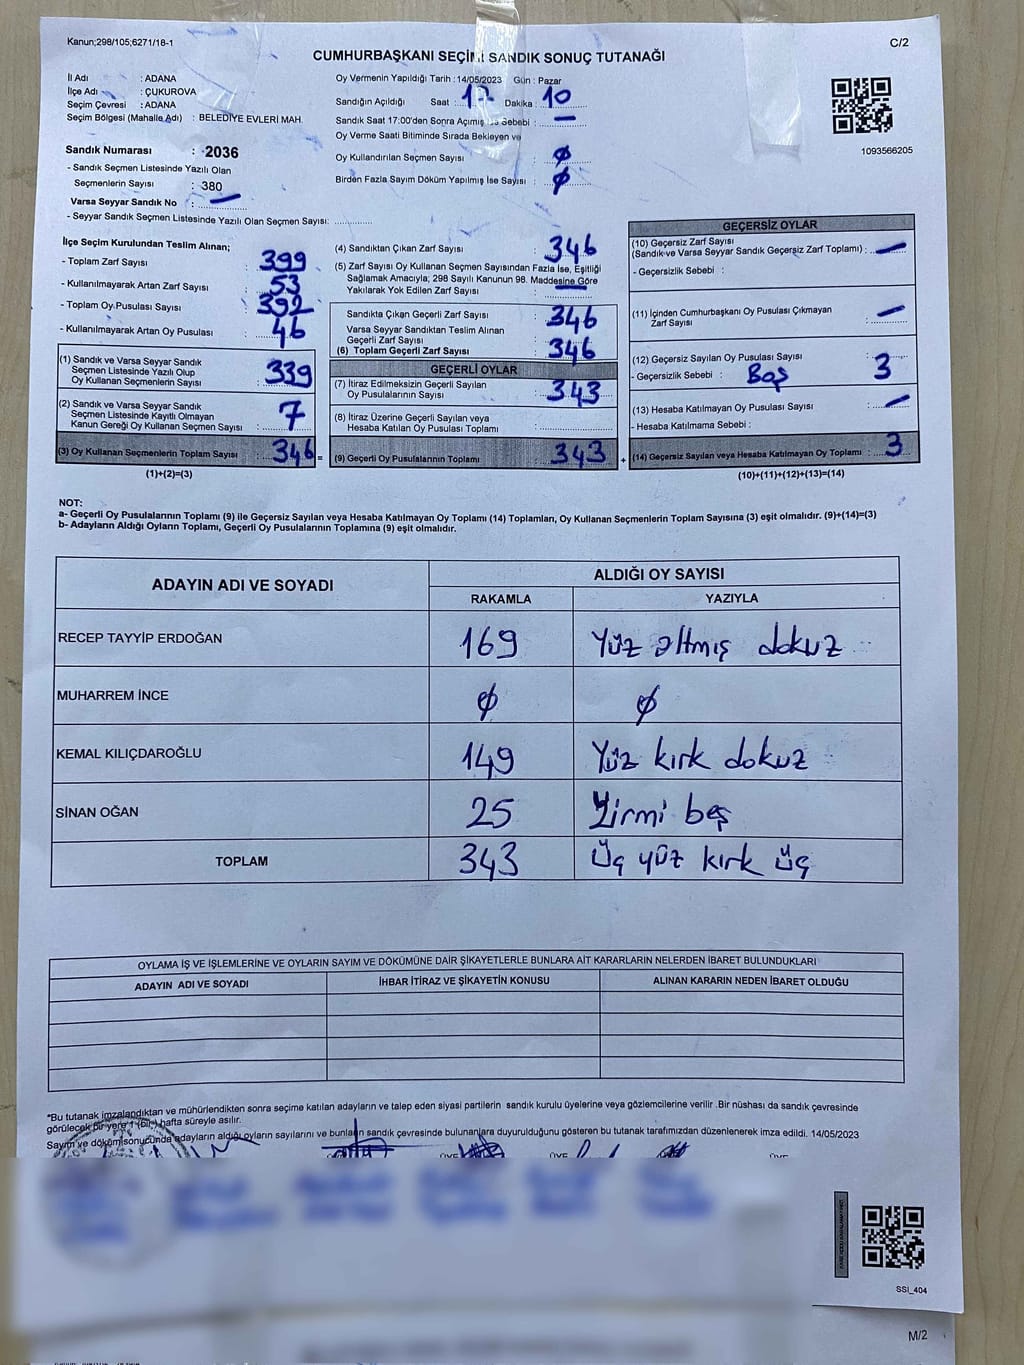 Kanun;298/105;6271/18-1
C/2
CUMHURBAŞKANI SEÇİMİ SANDIK SONUÇ TUTANAĞI
İl Adı : ADANA
İlçe Adı : ÇUKUROVA
Seçim Çevresi : ADANA
Seçim Bölgesi (Mahalle Adı) : BELEDİYE EVLERİ MAH.
Oy Vermenin Yapıldığı Tarih : 14/05/2023 Gün : Pazar
Sandığın Açıldığı Saat : 17 Dakika : 10
Sandık Saat 17:00'den Sonra Açımış İse Sebebi : —
Oy Verme Saati Bitiminde Sırada Bekleyen ve
Oy Kullandırılan Seçmen Sayısı : ø
Birden Fazla Sayım Döküm Yapılmış İse Sayısı : ø
1093566205
Sandık Numarası : 2036
- Sandık Seçmen Listesinde Yazılı Olan
Seçmenlerin Sayısı : 380
Varsa Seyyar Sandık No : —
- Seyyar Sandık Seçmen Listesinde Yazılı Olan Seçmen Sayısı: ............
İlçe Seçim Kurulundan Teslim Alınan;
- Toplam Zarf Sayısı : 399
- Kullanılmayarak Artan Zarf Sayısı : 53
- Toplam Oy Pusulası Sayısı : 392
- Kullanılmayarak Artan Oy Pusulası : 46
(1) Sandık ve Varsa Seyyar Sandık
Seçmen Listesinde Yazılı Olup
Oy Kullanan Seçmenlerin Sayısı : 339
(2) Sandık ve Varsa Seyyar Sandık
Seçmen Listesinde Kayıtlı Olmayan
Kanun Gereği Oy Kullanan Seçmen Sayısı : 7
(3) Oy Kullanan Seçmenlerin Toplam Sayısı : 346 =
(1)+(2)=(3)
(4) Sandıktan Çıkan Zarf Sayısı : 346
(5) Zarf Sayısı Oy Kullanan Seçmen Sayısından Fazla İse, Eşitliği
Sağlamak Amacıyla; 298 Sayılı Kanunun 98. Maddesine Göre
Yakılarak Yok Edilen Zarf Sayısı : —
Sandıkta Çıkan Geçerli Zarf Sayısı : 346
Varsa Seyyar Sandıktan Teslim Alınan
Geçerli Zarf Sayısı :
(6) Toplam Geçerli Zarf Sayısı : 346
GEÇERLİ OYLAR
(7) İtiraz Edilmeksizin Geçerli Sayılan
Oy Pusulalarının Sayısı : 343
(8) İtiraz Üzerine Geçerli Sayılan veya
Hesaba Katılan Oy Pusulası Toplamı :
(9) Geçerli Oy Pusulalarının Toplamı : 343 +
GEÇERSİZ OYLAR
(10) Geçersiz Zarf Sayısı
(Sandık ve Varsa Seyyar Sandık Geçersiz Zarf Toplamı) : —
- Geçersizlik Sebebi :
(11) İçinden Cumhurbaşkanı Oy Pusulası Çıkmayan
Zarf Sayısı : —
(12) Geçersiz Sayılan Oy Pusulası Sayısı : 3
- Geçersizlik Sebebi : Boş
(13) Hesaba Katılmayan Oy Pusulası Sayısı : —
- Hesaba Katılmama Sebebi :
(14) Geçersiz Sayılan veya Hesaba Katılmayan Oy Toplamı : 3
(10)+(11)+(12)+(13)=(14)
NOT:
a- Geçerli Oy Pusulalarının Toplamı (9) ile Geçersiz Sayılan veya Hesaba Katılmayan Oy Toplamı (14) Toplamları, Oy Kullanan Seçmenlerin Toplam Sayısına (3) eşit olmalıdır. (9)+(14)=(3)
b- Adayların Aldığı Oyların Toplamı, Geçerli Oy Pusulalarının Toplamına (9) eşit olmalıdır.
ADAYIN ADI VE SOYADI
ALDIĞI OY SAYISI
RAKAMLA YAZIYLA
RECEP TAYYİP ERDOĞAN 169 Yüz altmış dokuz
MUHARREM İNCE ø ø
KEMAL KILIÇDAROĞLU 149 Yüz kırk dokuz
SİNAN OĞAN 25 Yirmi beş
TOPLAM 343 Üç yüz kırk üç
OYLAMA İŞ VE İŞLEMLERİNE VE OYLARIN SAYIM VE DÖKÜMÜNE DAİR ŞİKAYETLERLE BUNLARA AİT KARARLARIN NELERDEN İBARET BULUNDUKLARI
ADAYIN ADI VE SOYADI İHBAR İTİRAZ VE ŞİKAYETİN KONUSU ALINAN KARARIN NEDEN İBARET OLDUĞU
*Bu tutanak imzalandıktan ve mühürlendikten sonra seçime katılan adayların ve talep eden siyasi partilerin sandık kurulu üyelerine veya gözlemcilerine verilir .Bir nüshası da sandık çevresinde
görülecek bir yere 1 (bir) hafta süreyle asılır.
Sayım ve dökümsonucunda adayların aldığı oyların sayılarını ve bunların sandık çevresinde bulunanlara duyurulduğunu gösteren bu tutanak tarafımızdan düzenlenerek imza edildi. 14/05/2023
SSI_404
M/2